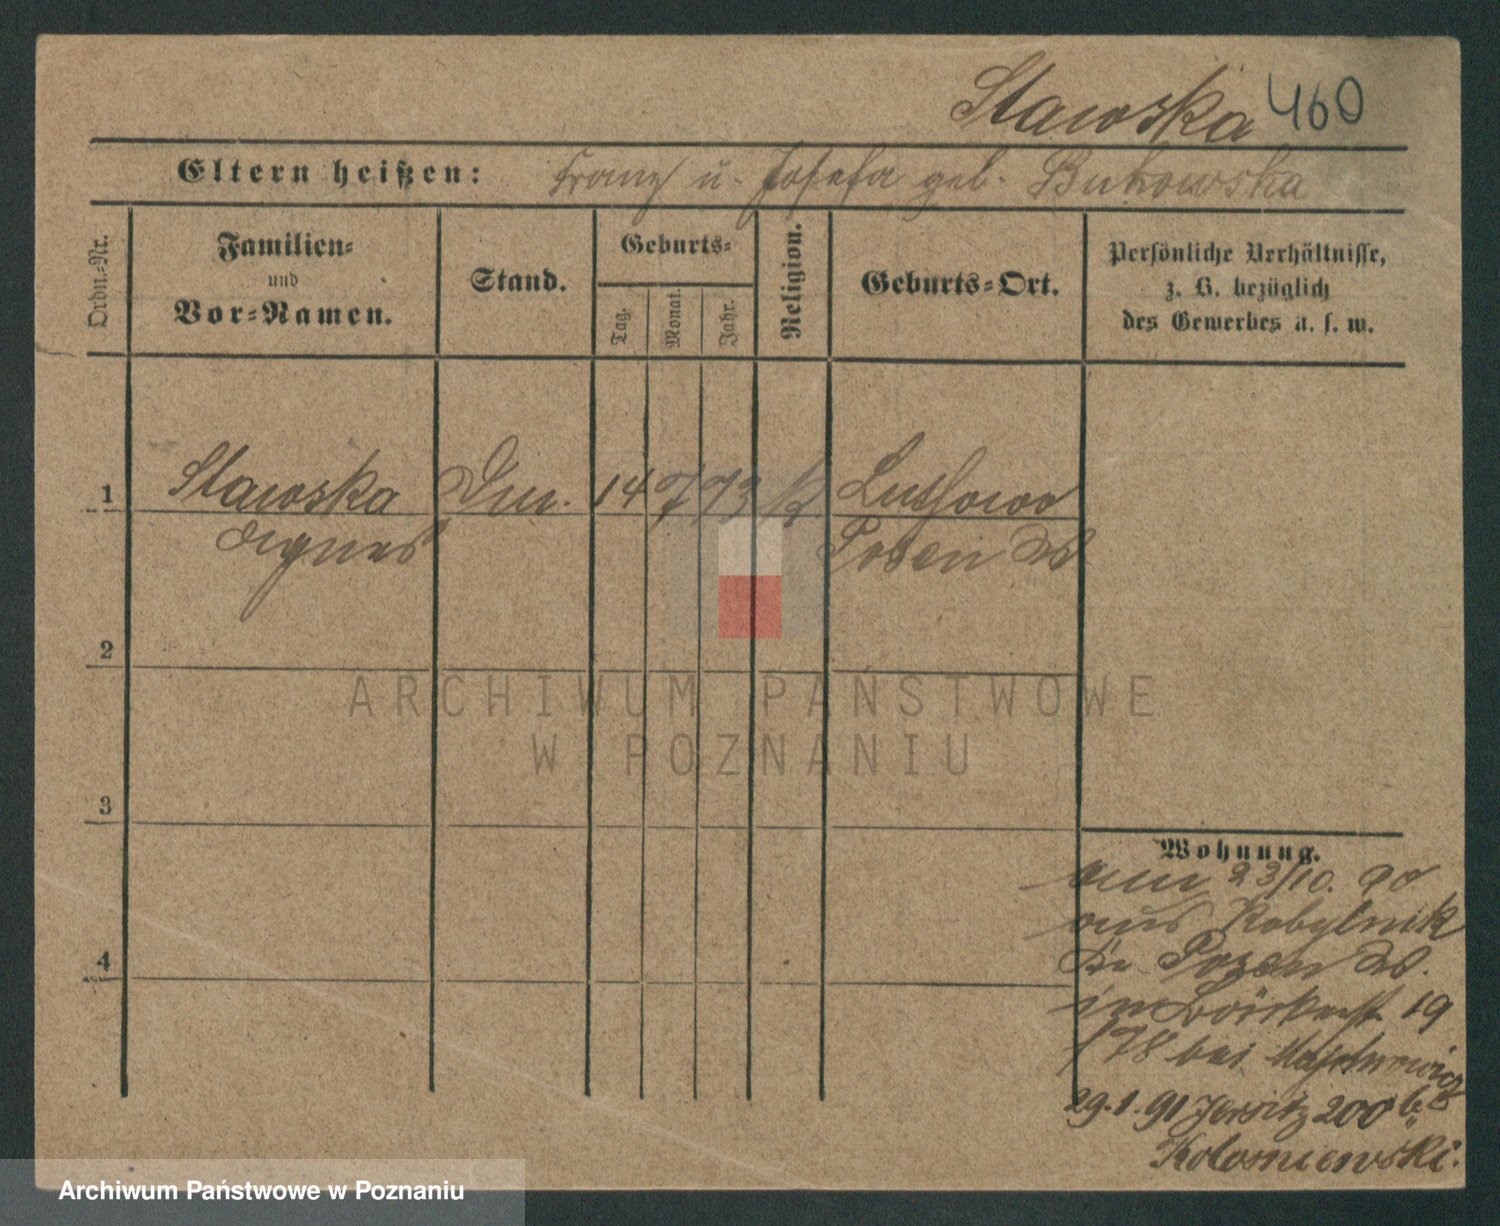 Stawska 460
Eltern heißen: Franz u. Josefa geb. Bukowska
Ordn.-Nr.
Familien-
und
Vor-Namen.
Stand.
Geburts-
Tag.
Monat.
Jahr.
Religion.
Geburts-Ort.
Persönliche Verhältnisse,
z. B. bezüglich
des Gewerbes u. s. w.
1 Stawska 14 7 73 K
Agnes Posen W
2
3
4
ARCHIWUM PAŃSTWOWE
W POZNANIU
Wohnung.
am 23/10. 90
aus Kobylnik
Kr Posen W.
in 19
178 bei
29.1.91 Jersitz 200 b
Archiwum Państwowe w Poznaniu